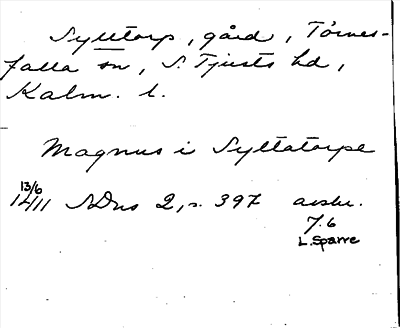 Sylltorp, gård, Törnes-
falla sn, S. Tjusts hd,
Kalm. l.
Magnus i Syltatorpe
13/6
1411 SDns 2, s. 397 avskr.
7.6
L. Sparre